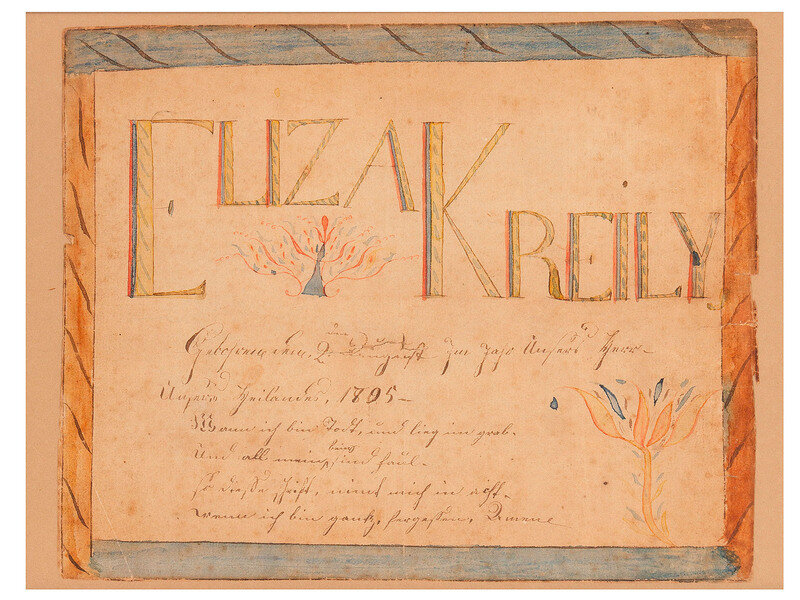 ELIZA KREILY
Geboren den 2 August im Jahr Unsers Herr-
Unsers Heilandes, 1805-
Wann ich bin Todt, und lieg im grab.
Und all mein bein sind faul.
so diesse schrift, nimt mich in acht.
wenn ich bin gantz, fergessen. Amene